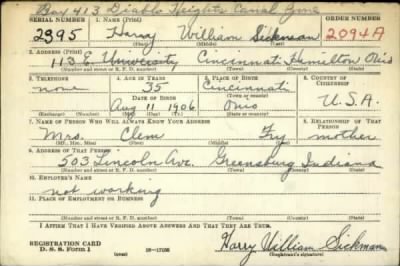 Box 413 Diablo Heights Canal Zone
SERIAL NUMBER 1. NAME (Print) ORDER NUMBER
2395 Harry William Sickman 2094A
(First) (Middle) (Last)
2. ADDRESS (Print)
113 E University Cincinnati Hamilton Ohio
(Number and street or R. F. D. number) (Town) (County) (State)
3. TELEPHONE 4. AGE IN YEARS 5. PLACE OF BIRTH 6. COUNTRY OF CITIZENSHIP
none 35 Cincinnati
DATE OF BIRTH (Town or county)
Aug 11 1906 Ohio U.S.A.
(Mo.) (Day) (Yr.) (State or country)
7. NAME OF PERSON WHO WILL ALWAYS KNOW YOUR ADDRESS 8. RELATIONSHIP OF THAT PERSON
Mrs. Clem Fry mother
(Mr., Mrs., Miss) (First) (Middle) (Last)
9. ADDRESS OF THAT PERSON
503 Lincoln Ave. Greensburg Indiana
(Number and street or R. F. D. number) (Town) (County) (State)
10. EMPLOYER'S NAME
not working
11. PLACE OF EMPLOYMENT OR BUSINESS
(Number and street or R. F. D. number) (Town) (County) (State)
I AFFIRM THAT I HAVE VERIFIED ABOVE ANSWERS AND THAT THEY ARE TRUE.
REGISTRATION CARD
D. S. S. Form 1 (over) Harry William Sickman
(Registrant's signature)